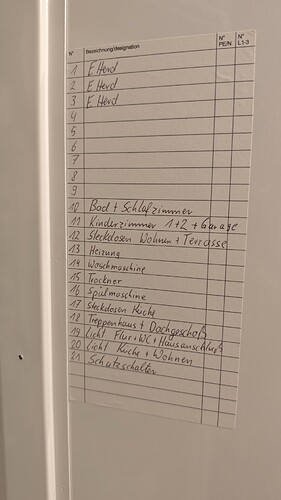 N° Bezeichnung/designation N° PE/N N° L1-3
1 E Herd
2 E Herd
3 E Herd
4
5
6
7
8
9
10 Bad + Schlafzimmer
11 Kinderzimmer 1+2 + Garage
12 Steckdosen Wohnen + Terrasse
13 Heizung
14 Waschmaschine
15 Trockner
16 Spülmaschine
17 Steckdosen Küche
18 Treppenhaus + Dachgeschoß
19 Licht Flur + WC + Hausanschluß
20 Licht Küche + Wohnen
21 Schutzschalter